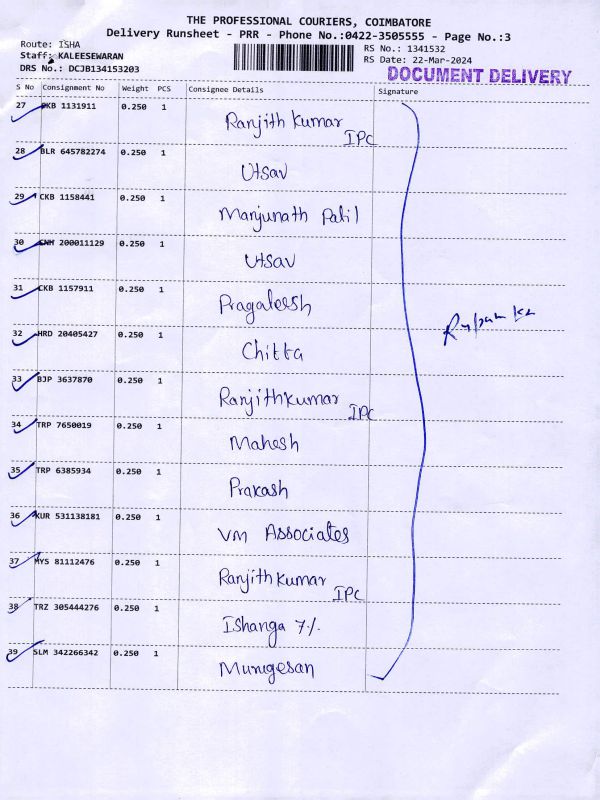 THE PROFESSIONAL COURIERS, COIMBATORE
Delivery Runsheet - PRR - Phone No.:0422-3505555 - Page No.:3
Route: ISHA
Staff: KALEESEWARAN
DRS No.: DCJB134153203
RS No.: 1341532
RS Date: 22-Mar-2024
DOCUMENT DELIVERY
S No Consignment No Weight PCS Consignee Details Signature
27 CKB 1131911 0.250 1 Ranjith Kumar IPC
28 BLR 645782274 0.250 1 Utsav
29 CKB 1158441 0.250 1 Manjunath Patil
30 200011129 0.250 1 Utsav
31 CKB 1157911 0.250 1 Pragateesh
32 HRD 20405427 0.250 1 Chitta
33 BJP 3637870 0.250 1 Ranjithkumar IPC
34 TRP 7650019 0.250 1 Mahesh
35 TRP 6385934 0.250 1 Prakash
36 KUR 531138181 0.250 1 VM Associates
37 MYS 81112476 0.250 1 Ranjith Kumar IPC
38 TRZ 305444276 0.250 1 Ishanga 7%
39 SLM 342266342 0.250 1 Murugesan